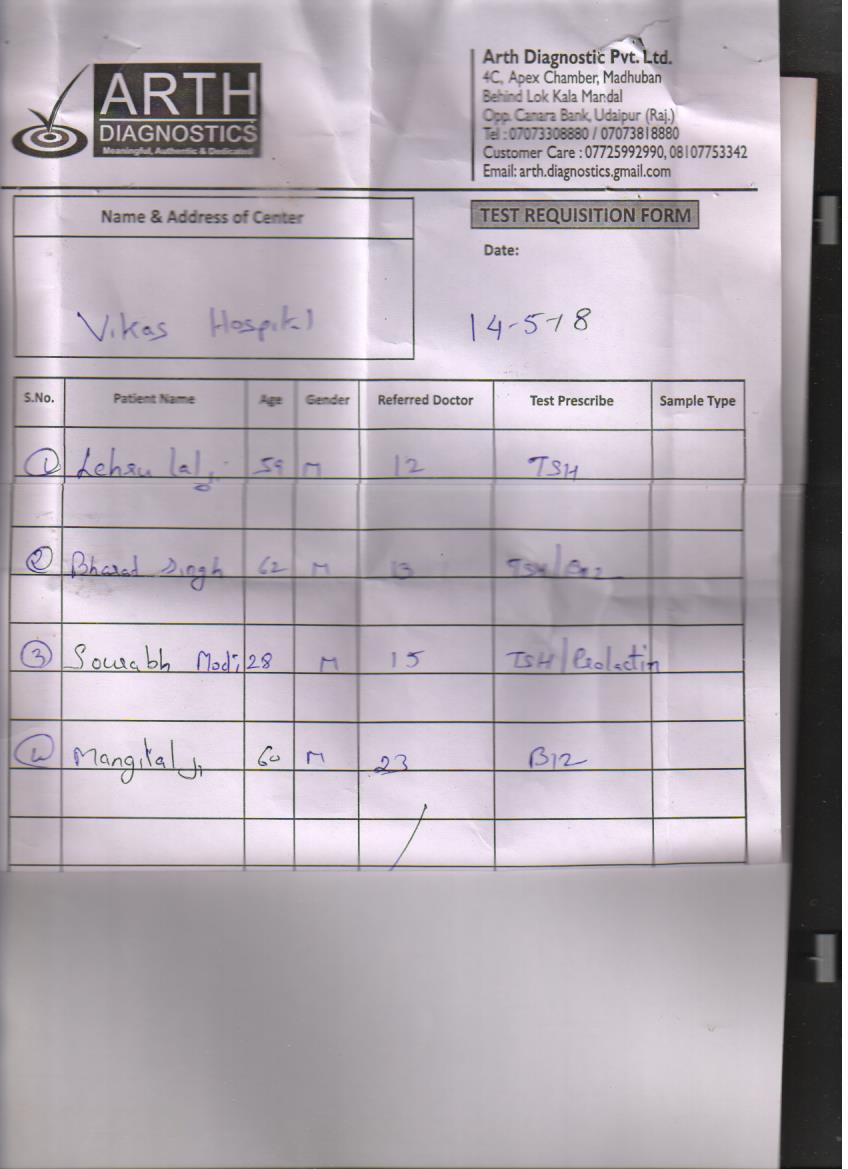 ARTH
DIAGNOSTICS
Meaningful, Authentic & Dedicated
Arth Diagnostic Pvt. Ltd.
4C, Apex Chamber, Madhuban
Behind Lok Kala Mandal
Opp. Canara Bank, Udaipur (Raj.)
Tel : 07073308880 / 07073818880
Customer Care : 07725992990, 08107753342
Email: arth.diagnostics.gmail.com
Name & Address of Center
TEST REQUISITION FORM
Date:
Vikas Hospital
14-5-18
S.No. Patient Name Age Gender Referred Doctor Test Prescribe Sample Type
1 Lehru lal ji 59 M 12 TSH
2 Bharat Singh 62 M 13 TSH/B12
3 Sourabh Modi 28 M 15 TSH/Prolactin
4 Mangilal ji 60 M 23 B12